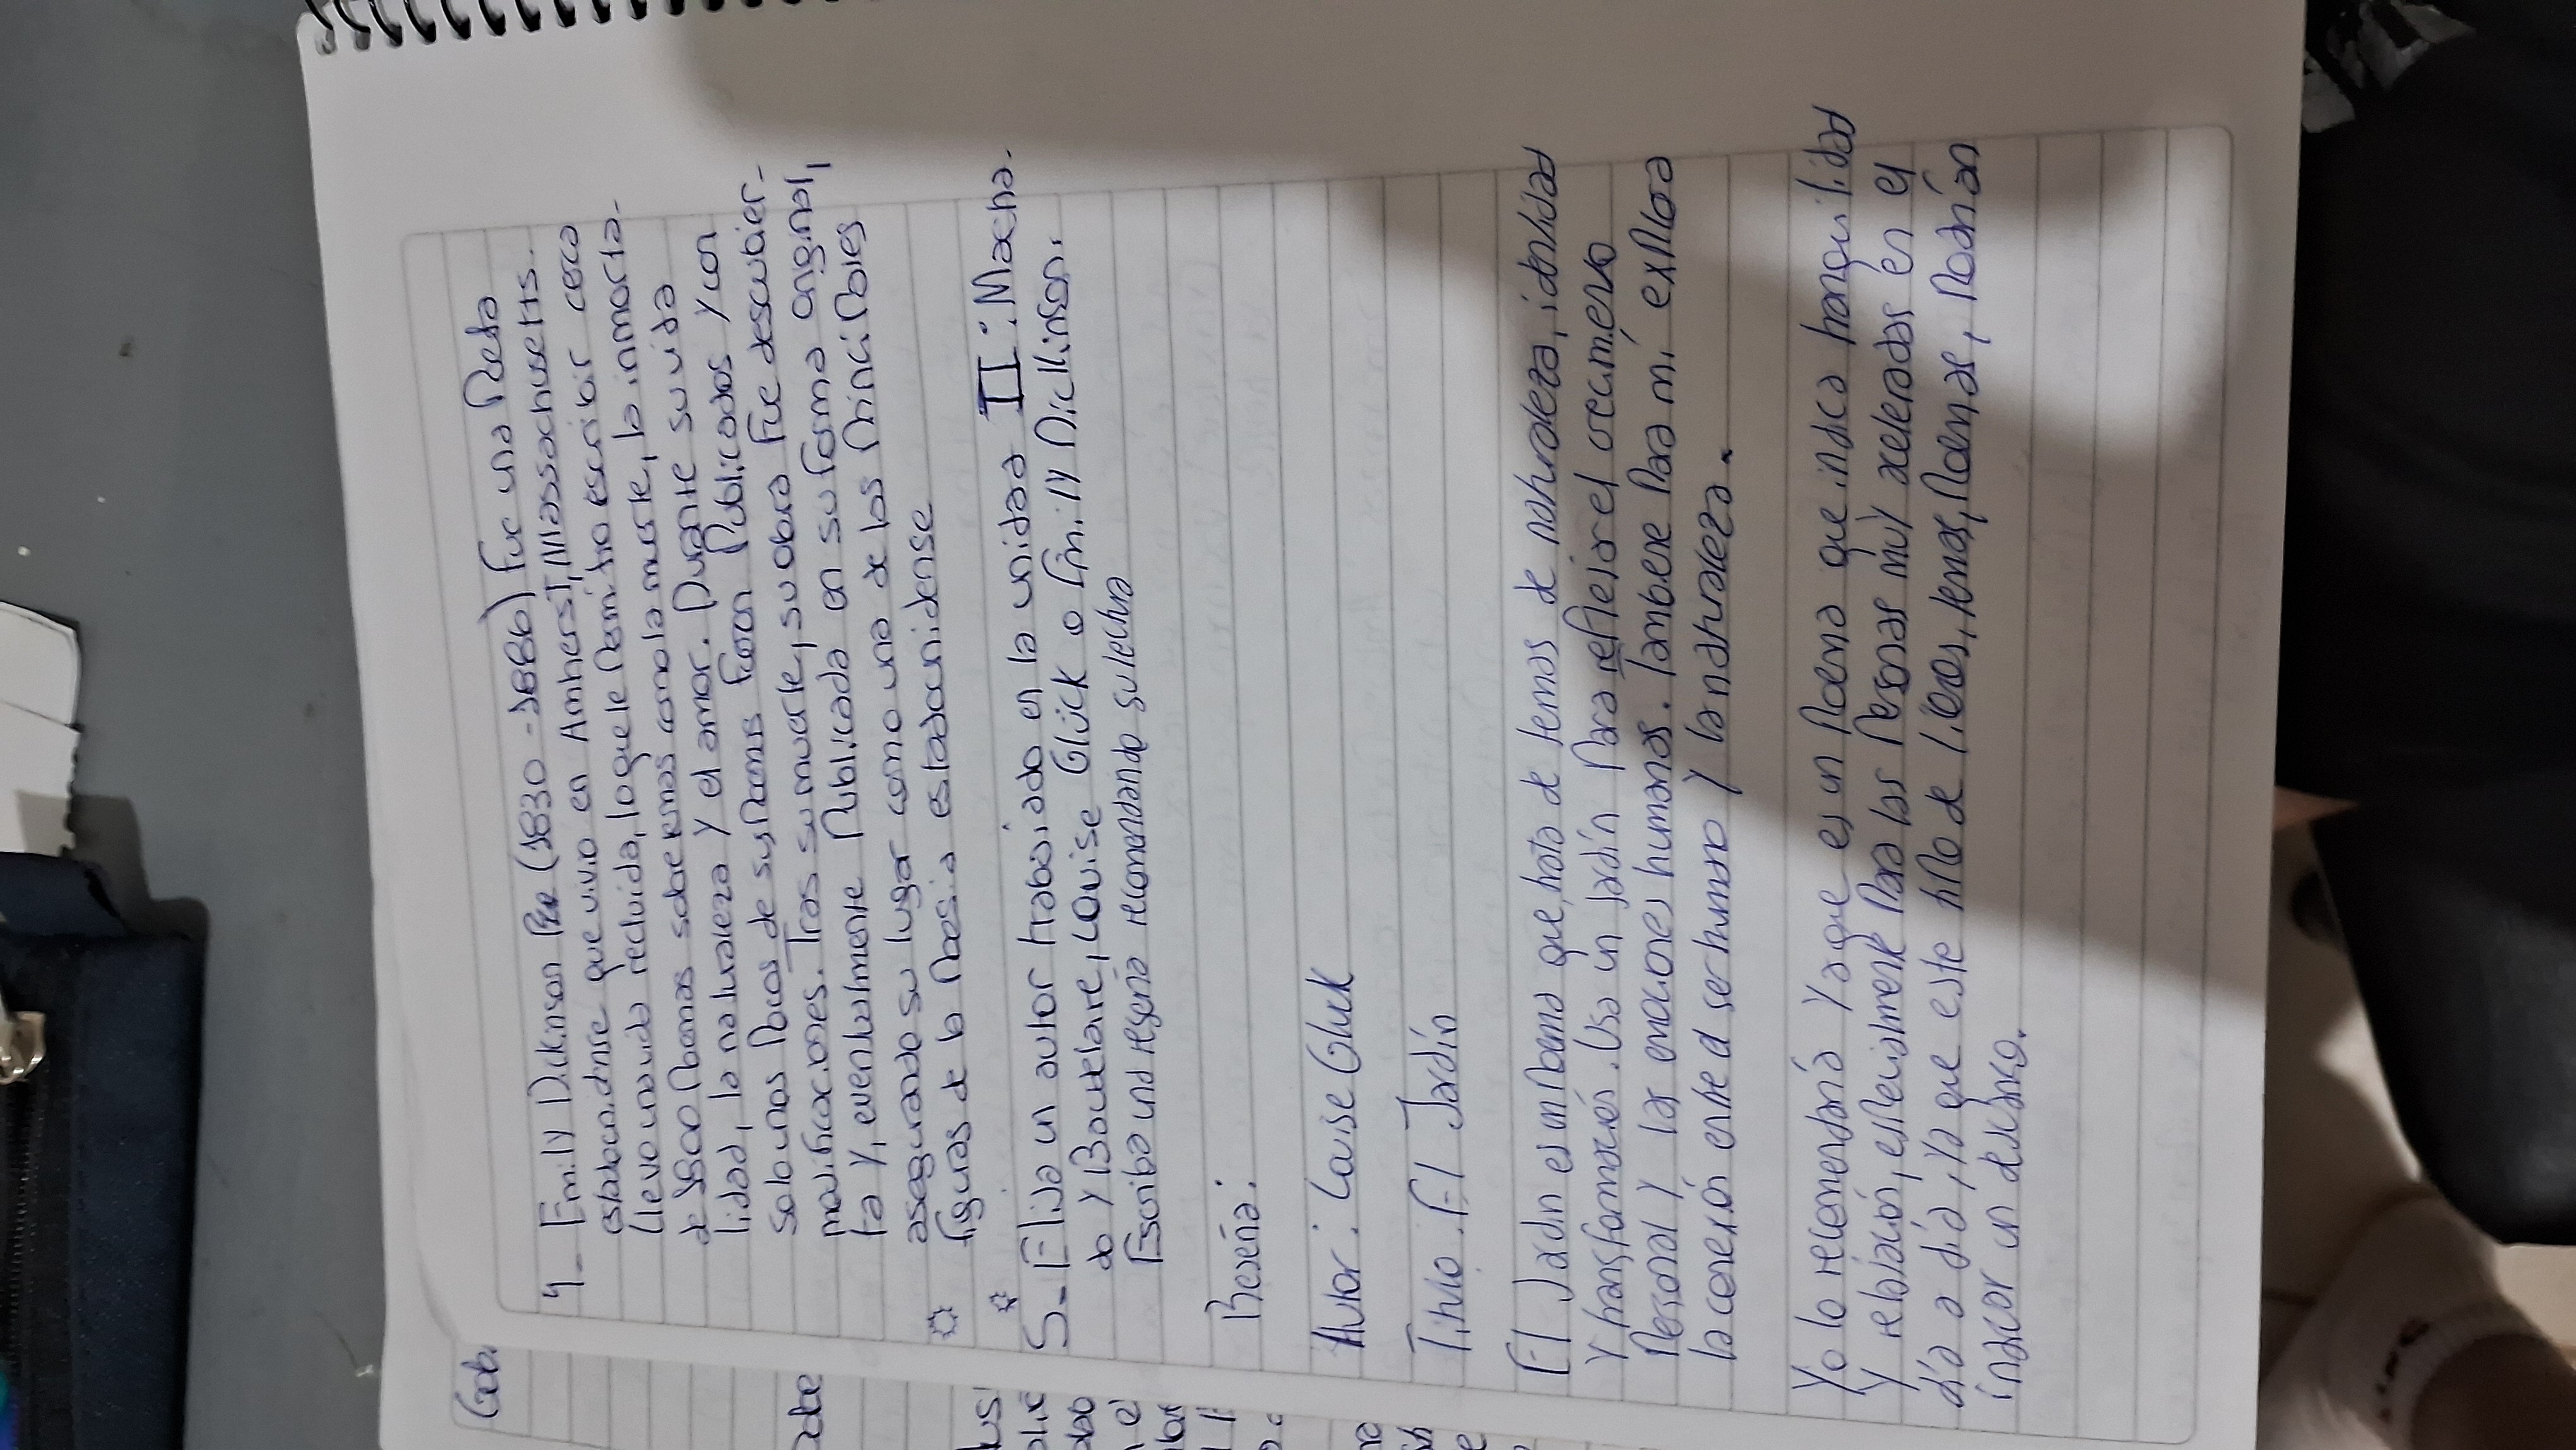 4- Emily Dickinson (1830-1886) fue una Poeta
estadounidense que vivio en Amherst, Massachusetts.
Llevo una vida recluida, lo que le Permitio escribir cerca
de 1800 Poemas sobre temas como la muerte, la inmorta-
lidad, la naturaleza y el amor. Durante su vida
solo unos Pocos de sus Poemas fueron Publicados y con
modificaciones. Tras su muerte, su obra fue descubier-
ta y, eventualmente Publicada en su forma original,
asegurando su lugar como una de los Principales
figuras de la Poesia estadounidense
5- Elija un autor trabajado en la unidad II: Macha-
do y Boudelaire, Louise Glück o Emily Dickinson.
Escriba una reseña recomendando su lectura
Reseña:
Autor: Louise Gluck
Titulo: El Jardín
El Jardín es un Poema que trata de temas de naturaleza, identidad
y transformación. Usa un jardín Para reflejar el crecimiento
Personal y las emociones humanas. Tambien Para mí explora
la conexión entre el ser humano y la naturaleza.
Yo lo recomendaría ya que es un Poema que indica tranquilidad
y relajación, especialmente Para las Personas muy aceleradas en el
día a día, ya que este tipo de libros, temas, Poemas, Podrían
indicar un descanso.
Gab.